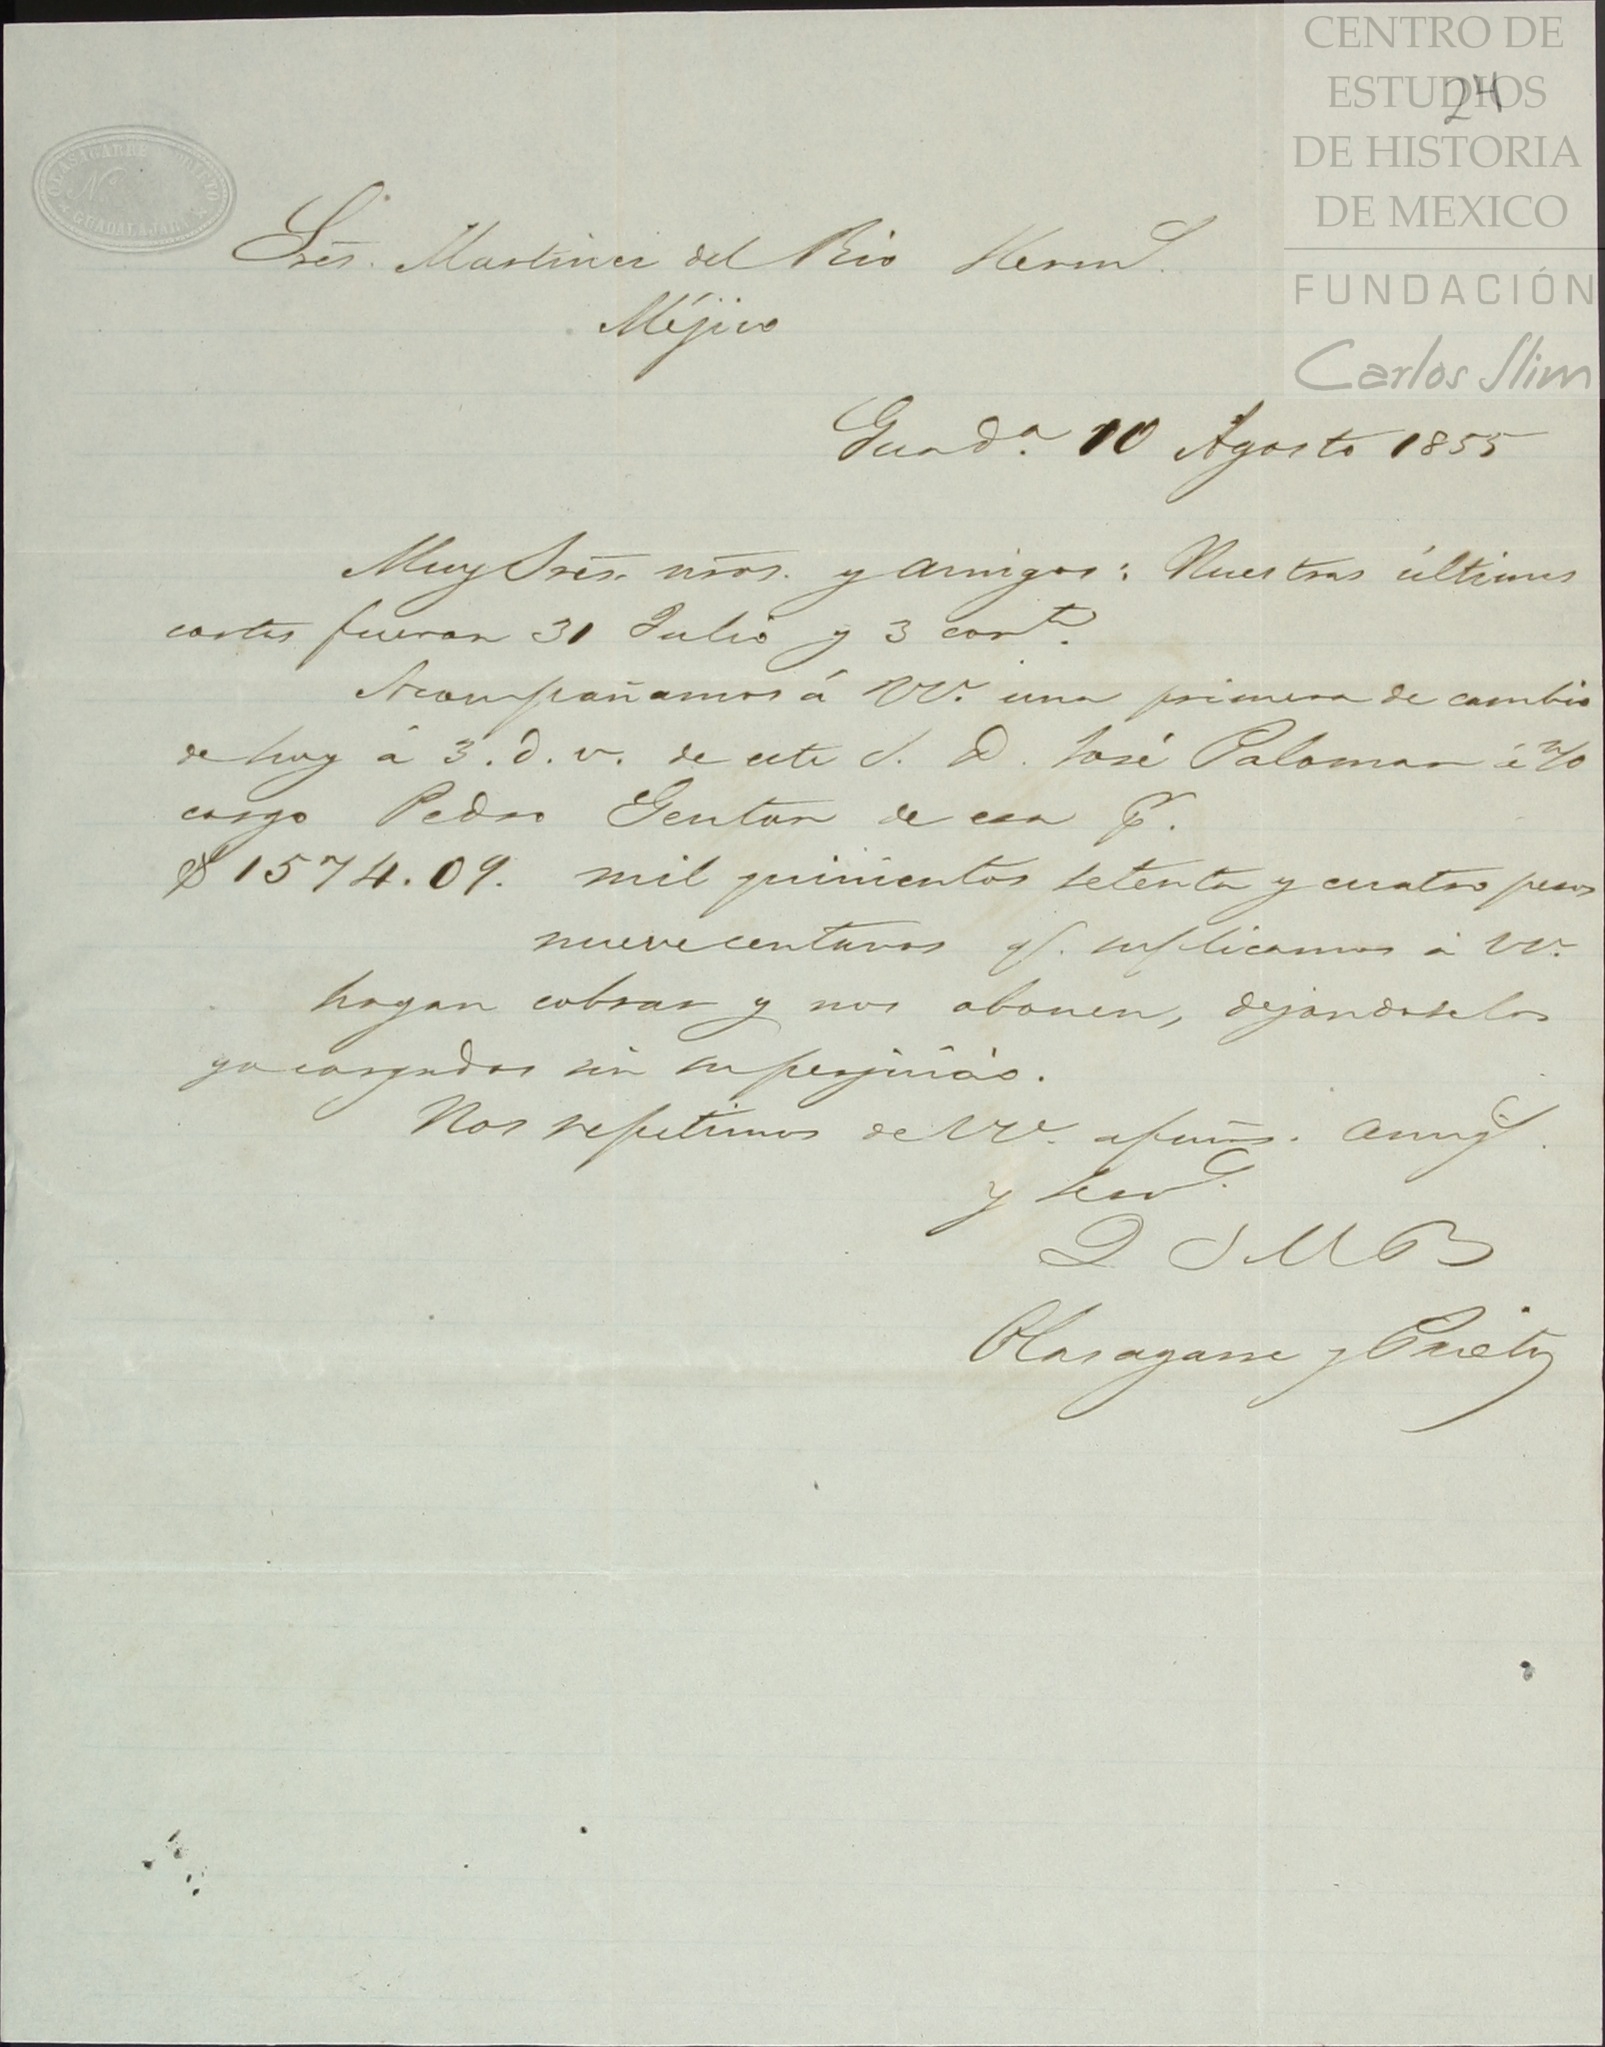 CENTRO DE
ESTUDIOS
DE HISTORIA
DE MEXICO
FUNDACIÓN
Carlos Slim
24
OLASAGARRE Y PRIETO
GUADALAJARA
Sres. Martinez del Rio Herms.
Méjico
Guada. 10 Agosto 1855
Muy Sres. nros. y amigos: Nuestras últimas
cartas fueron 31 Julio y 3 cort.
Acompañamos á VV. una primera de cambio
de hoy á 3. d. v. de este S. D. José Palomar
cargo Pedro Jentor de esa
$ 1574.09. mil quinientos setenta y cuatro pesos
nueve centavos q. suplicamos á VV.
hagan cobrar y nos abonen, dejandoselos
ya cargados sin su perjuicio.
Nos repetimos de VV. afmos. amigs.
y servs.
Q S M B
Olasagarre y Prieto